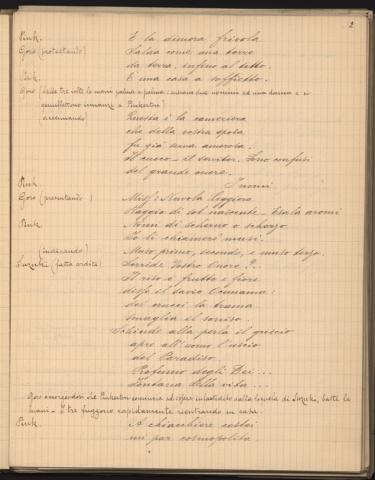 2
Pink. È la dimora frivola
Goro (protestando) Salda come una torre
da terra, infino al tetto.
Pink. È una casa a soffietto.
Goro (batte tre volte le mani palma a palma: entrano due uomini ed una donna e si
genuflettono innanzi a Pinkerton)
(accennando) Questa è la cameriera
che della vostra sposa
fu già serva amorosa.
Il cuoco – il servitor. Sono confusi
del grande onore.
Pink. I nomi
Goro (presentando) Miss Nuvola Leggiera
Raggio di sol nascente – Esala aromi
Pink. Nomi di scherno o scherzo
Io li chiamerò musi.
(indicando) Muso primo, secondo, e muso terzo.
Suzuki (fatta ardita) Sorride Vostro Onore?..
Il riso è frutto e fiore
disse il savio Ocunama:
dei crucci la trama
smaglia il sorriso.
Schiude alla perla il guscio
apre all'uomo l'uscio
del Paradiso.
Profumo degli Dei...
Fontana della vita...
Goro accorgendosi che Pinkerton comincia ad essere infastidito dalla loquela di Suzuki, batte le
mani – I tre fuggono rapidamente rientrando in casa.
Pink. A chiacchiere costei
mi par cosmopolita